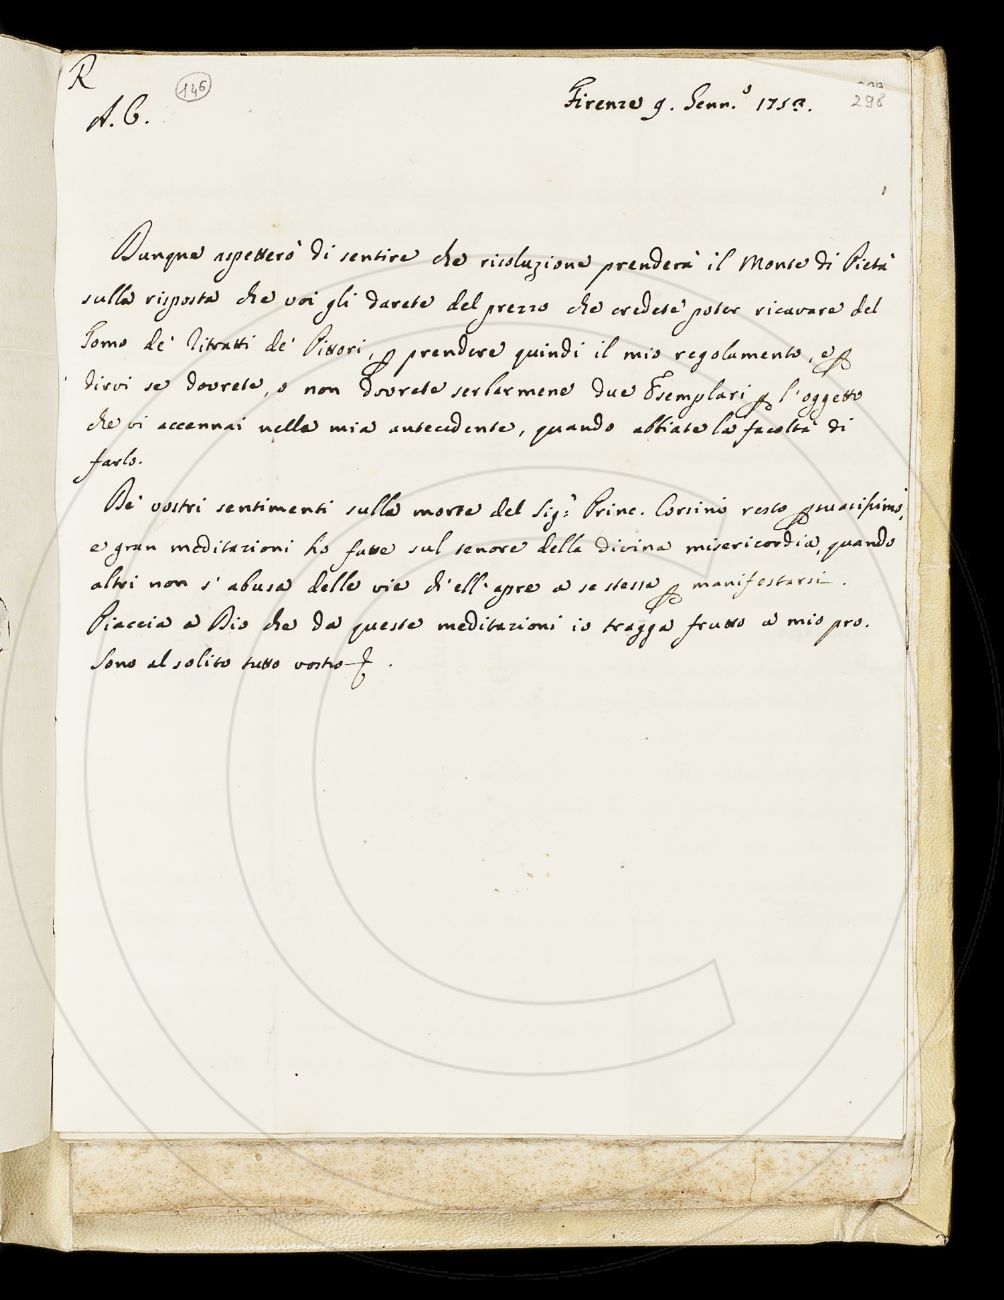 R
146
A. C.
Firenze 9. Genn.º 1753.
298
Dunque aspetterò di sentire che risoluzione prenderà il Monte di Pietà
sulla risposta che voi gli darete del prezzo che credete poter ricavare del
Tomo de' Ritratti de' Pittori, ꝑ prendere quindi il mio regolamento, e ꝑ
dirvi se dovrete, o non dovrete serbarmene due Esemplari ꝑ l'oggetto
che vi accennai nella mia antecedente, quando abbiate la facoltà di
farlo.
De' vostri sentimenti sulla morte del Sig.r Princ. Corsini resto ꝑsuasissimo,
e gran meditazioni ho fatte sul tenore della divina misericordia, quando
altri non s'abusa delle vie ch'ell'apre a se stessa ꝑ manifestarsi.
Piaccia a Dio che da queste meditazioni io tragga frutto a mio pro.
Sono al solito tutto vostro